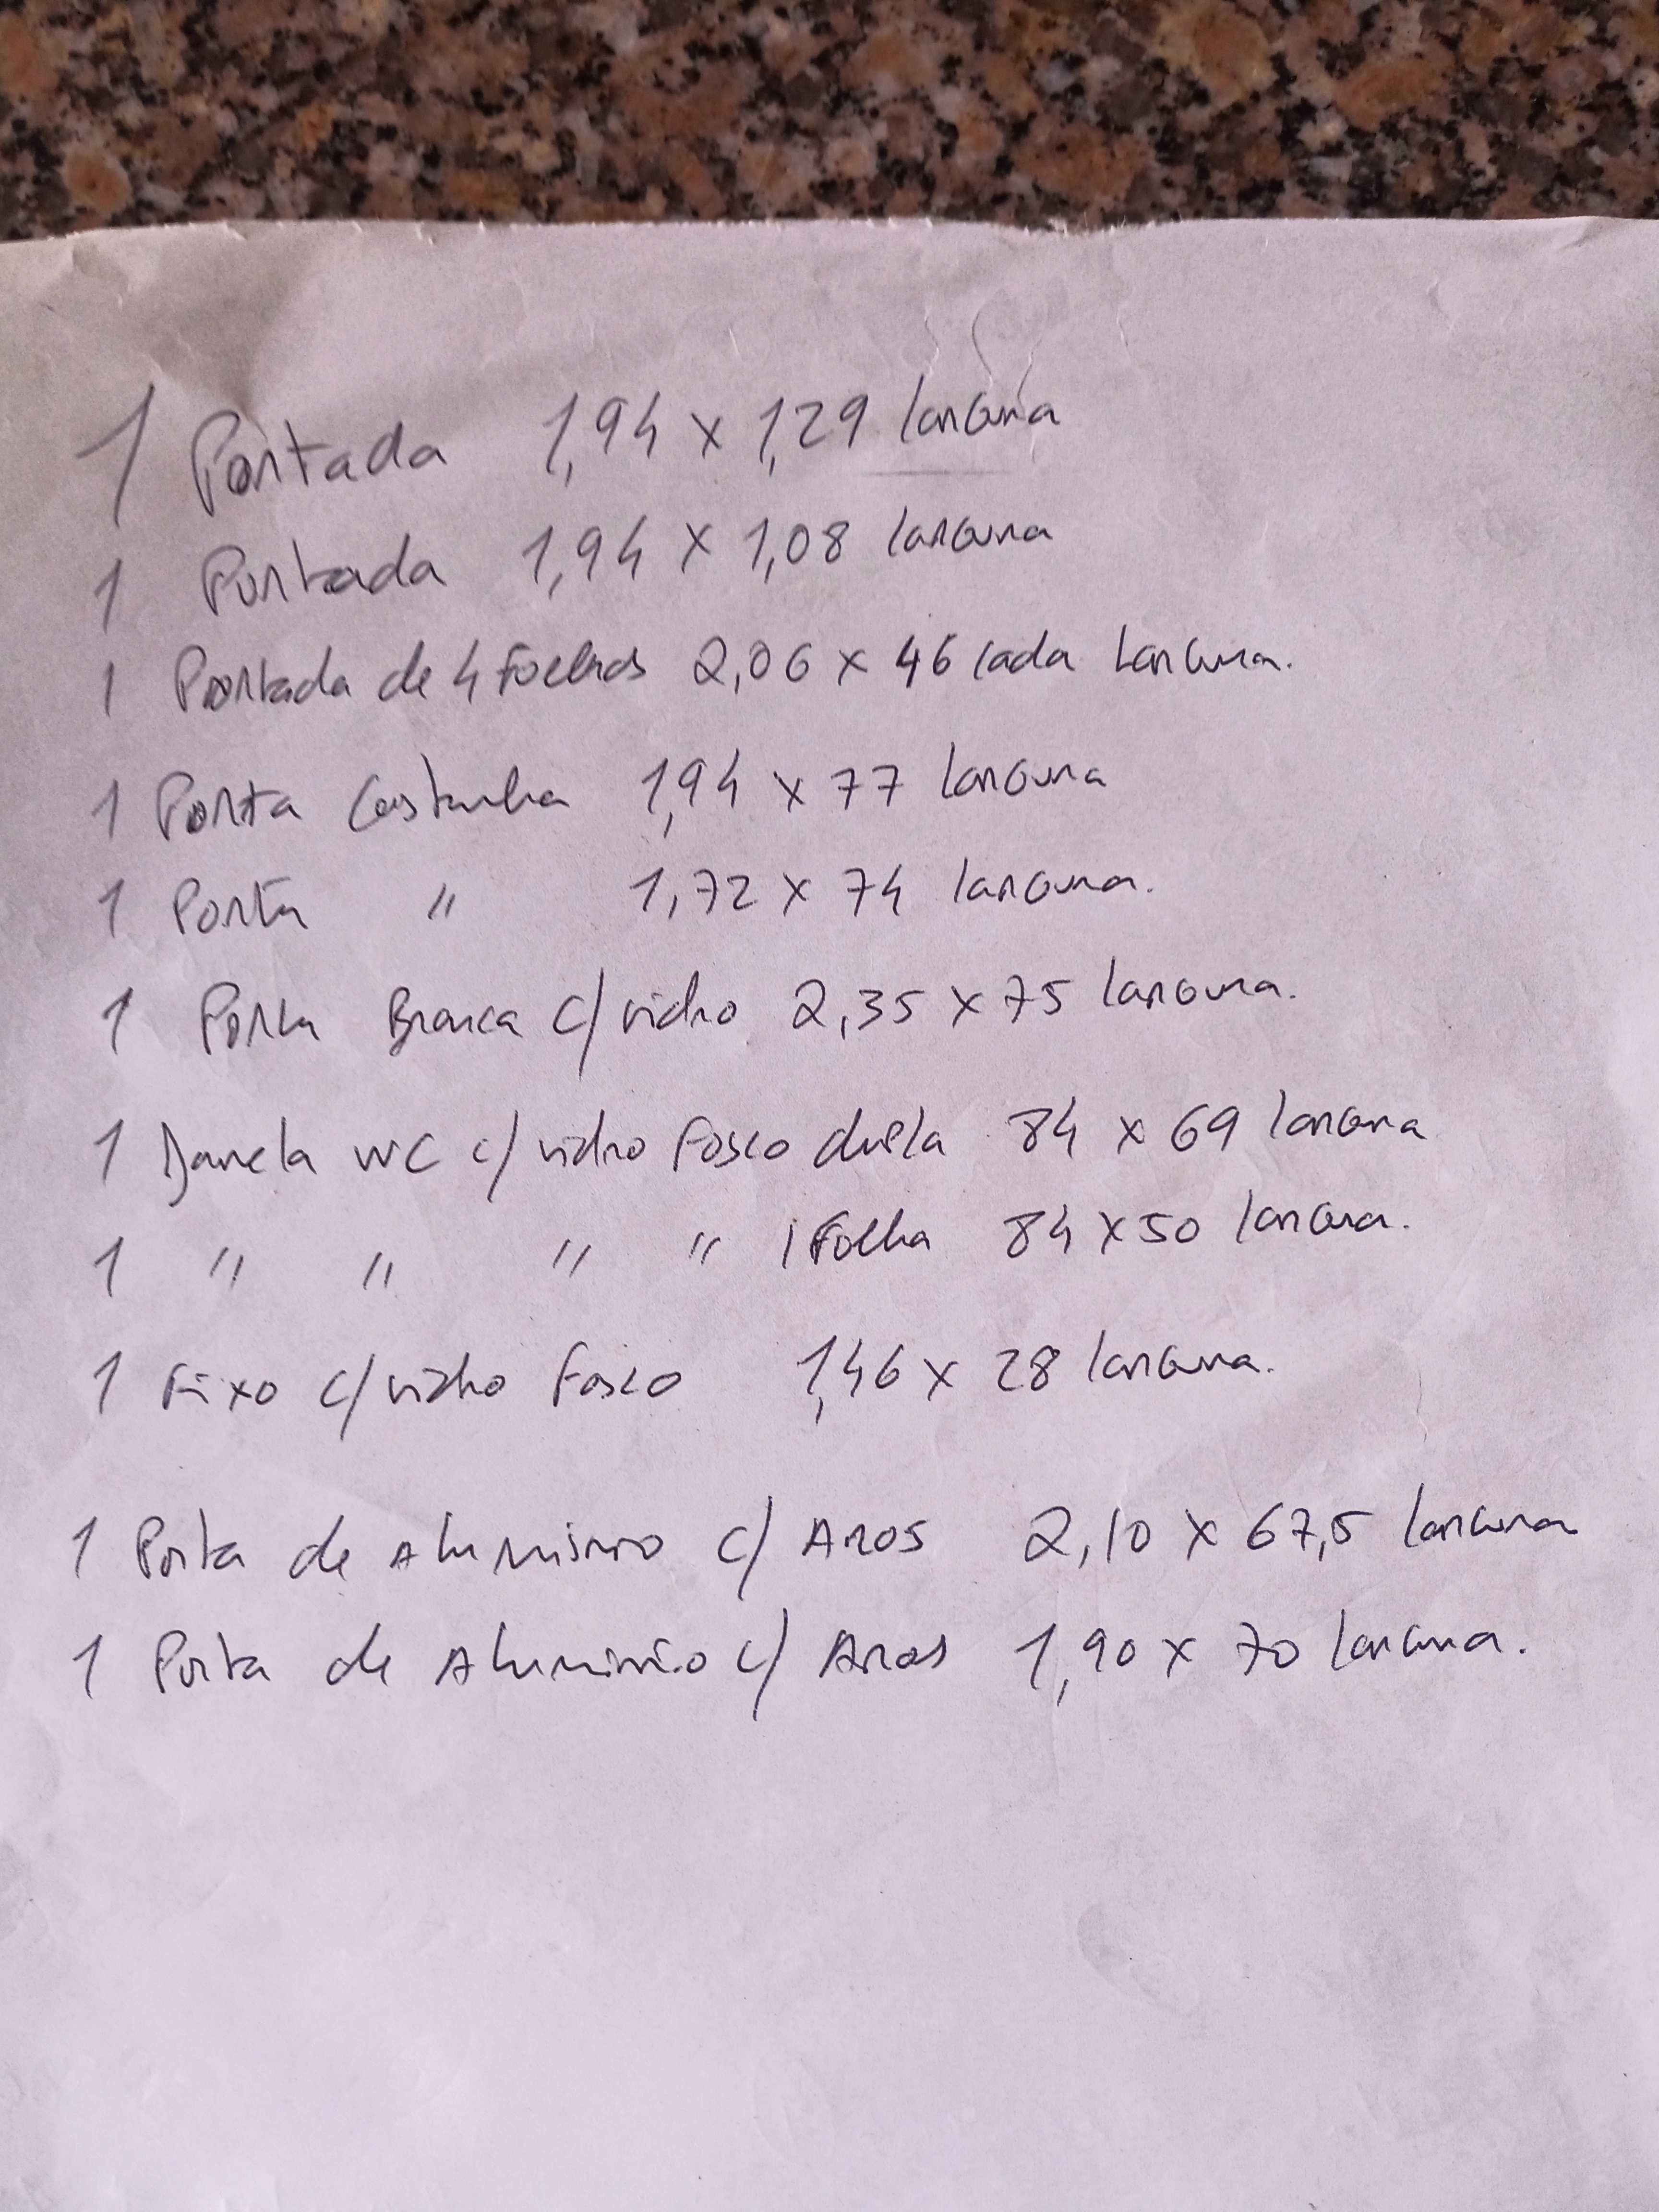 1 Portada 1,94 x 1,29 largura
1 Portada 1,94 x 1,08 largura
1 Portada de 4 Folhas 2,06 x 46 cada Largura.
1 Porta Castanha 1,94 x 77 largura
1 Porta " 1,72 x 74 largura.
1 Porta Branca c/ vidro 2,35 x 75 largura.
1 Janela WC c/ vidro Fosco dupla 84 x 69 largura
1 " " " " 1 Folha 84 x 50 largura.
1 Fixo c/ vidro Fosco 1,46 x 28 largura.
1 Porta de Aluminio c/ Aros 2,10 x 67,5 largura
1 Porta de Aluminio c/ Aros 1,90 x 70 largura.